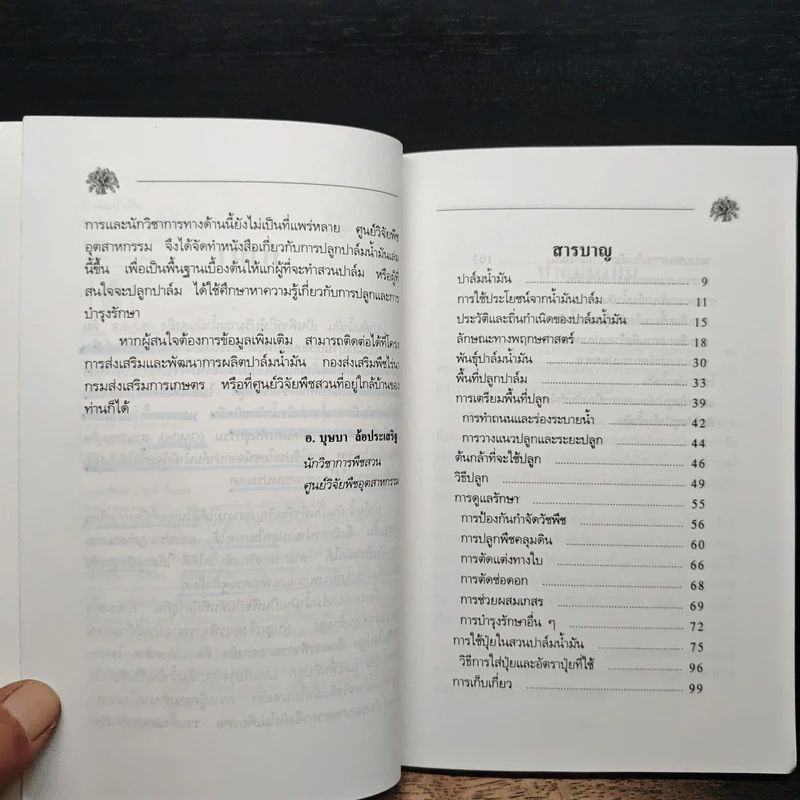 การและนักวิชาการทางด้านนี้ยังไม่เป็นที่แพร่หลาย ศูนย์วิจัยพืช
อุตสาหกรรม จึงได้จัดทำหนังสือเกี่ยวกับการปลูกปาล์มน้ำมันเล่ม
นี้ขึ้น เพื่อเป็นพื้นฐานเบื้องต้นให้แก่ผู้ที่จะทำสวนปาล์ม หรือผู้ที่
สนใจจะปลูกปาล์ม ได้ใช้ศึกษาหาความรู้เกี่ยวกับการปลูกและการ
บำรุงรักษา
หากผู้สนใจต้องการข้อมูลเพิ่มเติม สามารถติดต่อได้ที่โครง
การส่งเสริมและพัฒนาการผลิตปาล์มน้ำมัน กองส่งเสริมพืชไร่นา
กรมส่งเสริมการเกษตร หรือที่ศูนย์วิจัยพืชสวนที่อยู่ใกล้บ้านของ
ท่านก็ได้
อ. บุษบา ล้อประเสริฐ
นักวิชาการพืชสวน
ศูนย์วิจัยพืชอุตสาหกรรม
สารบาญ
ปาล์มน้ำมัน 9
การใช้ประโยชน์จากน้ำมันปาล์ม 11
ประวัติและถิ่นกำเนิดของปาล์มน้ำมัน 15
ลักษณะทางพฤกษศาสตร์ 18
พันธุ์ปาล์มน้ำมัน 30
พื้นที่ปลูกปาล์ม 33
การเตรียมพื้นที่ปลูก 39
การทำถนนและร่องระบายน้ำ 42
การวางแนวปลูกและระยะปลูก 44
ต้นกล้าที่จะใช้ปลูก 46
วิธีปลูก 49
การดูแลรักษา 55
การป้องกันกำจัดวัชพืช 56
การปลูกพืชคลุมดิน 60
การตัดแต่งทางใบ 66
การตัดช่อดอก 68
การช่วยผสมเกสร 69
การบำรุงรักษาอื่น ๆ 72
การใช้ปุ๋ยในสวนปาล์มน้ำมัน 75
วิธีการใส่ปุ๋ยและอัตราปุ๋ยที่ใช้ 96
การเก็บเกี่ยว 99